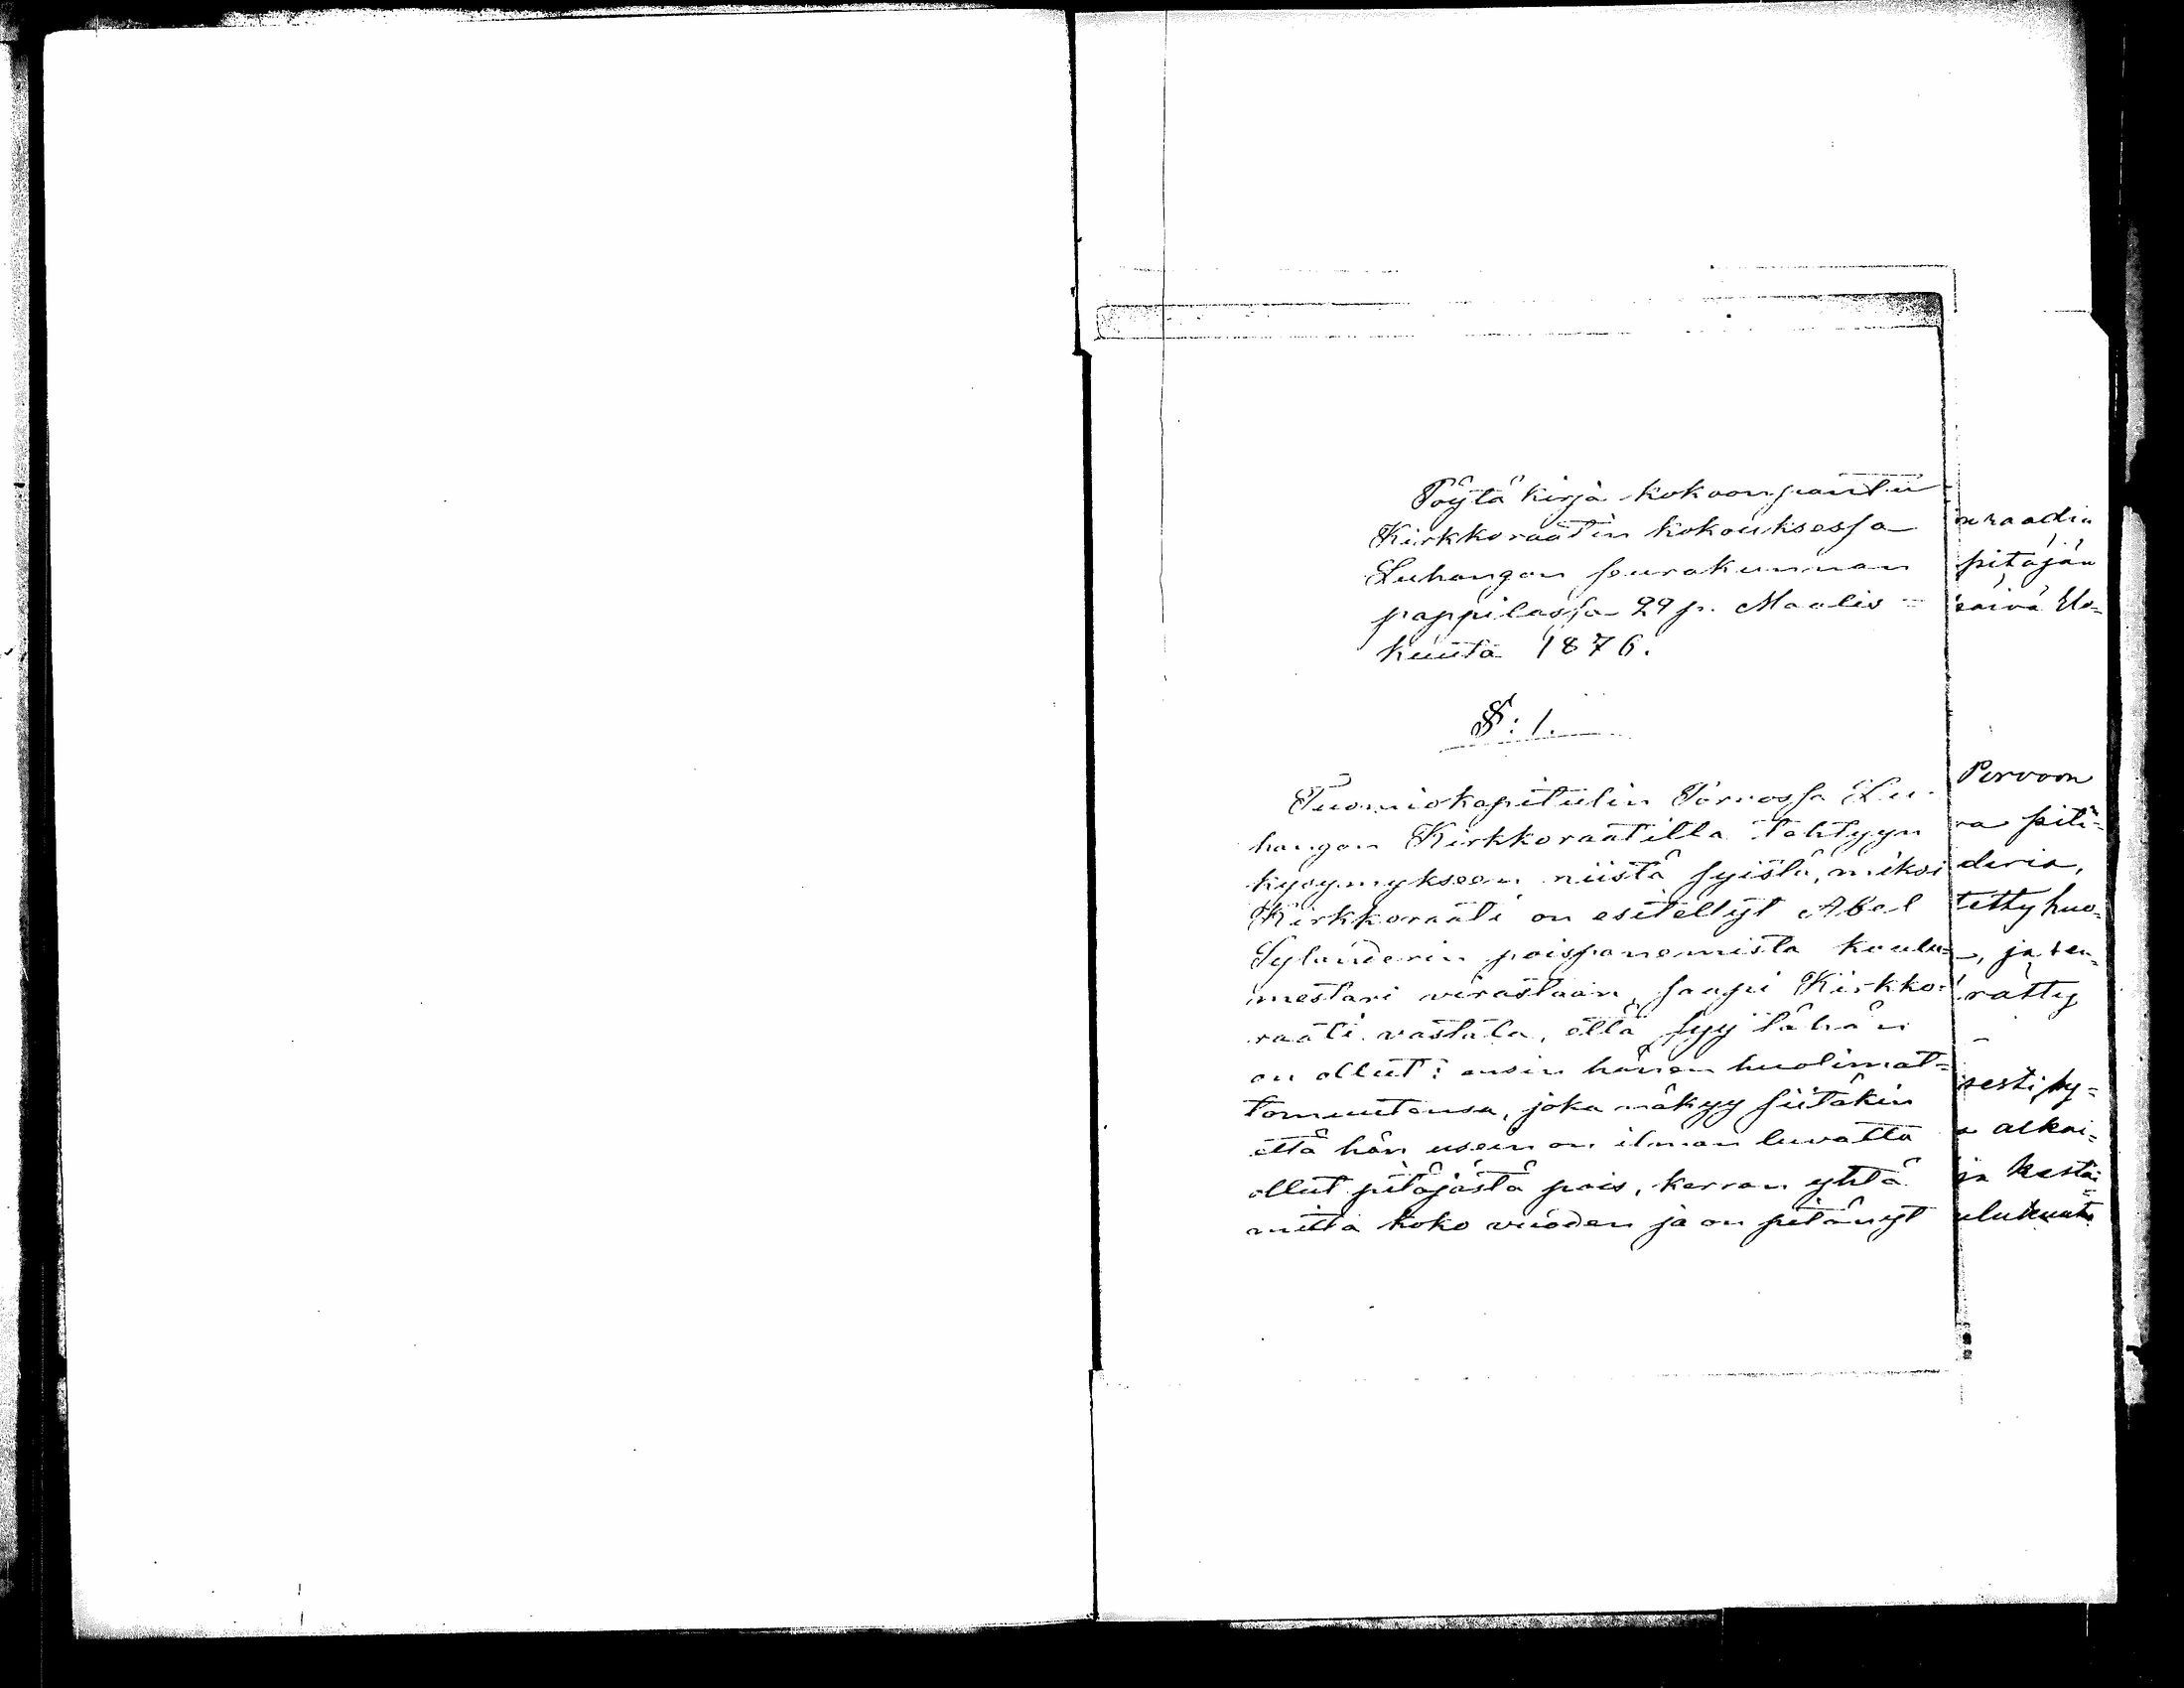 Pöytäkirja kokoonpantu
Kirkkoraatin kokouksessa
Luhangan seurakunnan
pappilassa 29 p. Maalis=
kuuta 1876.
§: 1.
Tuomiokapitulin Porvossa Lu-
hangan Kirkkoraatilta tehtyyn
kysymykseen niistä syistä, miksi
Kirkkoraati on esitellyt Abel
Sylanderin poispanemista koulu=
mestari virastaan, saapi Kirkko=
raati vastata, että syy tähän
on ollut: ensin hänen huolimat=
tomuutensa, joka näkyy siitäkin
että hän usein on ilman luvatta
ollut pitäjästä pois, kerran yhtä
mitta koko vuoden ja on pitänyt
nraadin
pitäjän
päivä Elo=
Porvoon
ra pitä=
deria,
tetty huo=
, ja seu=
rätty
sesti py=
alkai=
ja kestäi
ulukuuta